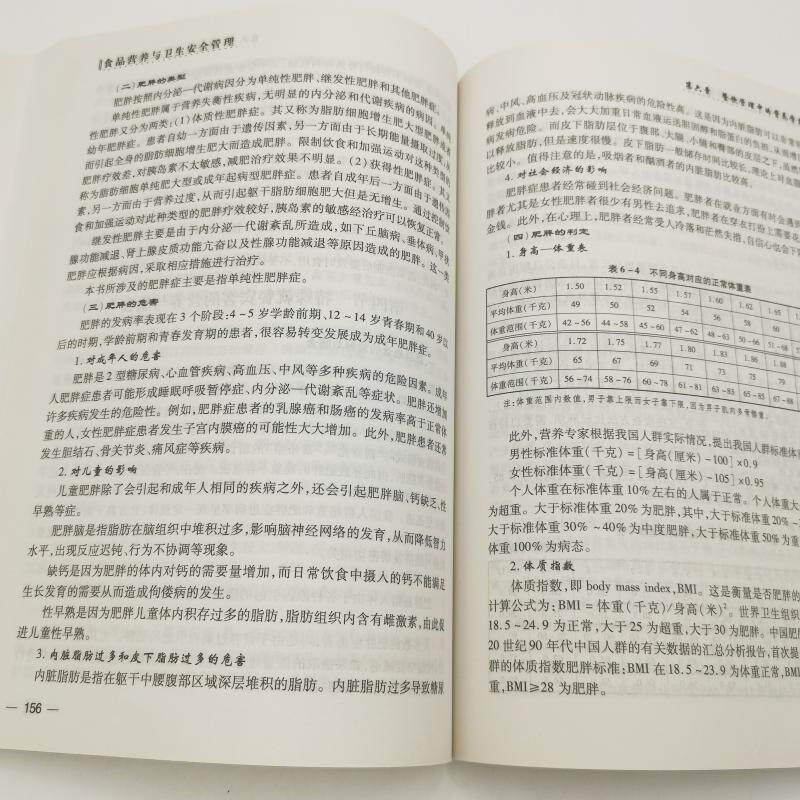 食品营养与卫生安全管理
(二)肥胖的类型
肥胖按照内分泌—代谢病因分为单纯性肥胖、继发性肥胖和其他肥胖症。
单纯性肥胖属于营养失衡性疾病,无明显的内分泌和代谢疾病的病因。单纯
性肥胖又分为两类:(1)体质性肥胖症。其又称为脂肪细胞增生肥大型肥胖或者
幼年肥胖症。患者自幼一方面由于遗传因素,另一方面由于长期能量摄取过度,从
而引起全身的脂肪细胞增生肥大而造成肥胖。限制饮食和加强运动对这种类型的
肥胖疗效差,对胰岛素不太敏感,减肥治疗效果不明显。(2)获得性肥胖症。其又
称为脂肪细胞单纯肥大型或成年起病型肥胖症。患者自成年后一方面由于遗传因
素,另一方面由于营养过度,从而引起躯干脂肪细胞肥大但是无增生。通过控制饮
食和加强运动对此种类型的肥胖疗效较好,胰岛素的敏感经治疗可以恢复正常。
继发性肥胖主要是由于内分泌—代谢紊乱所造成,如下丘脑病、垂体病、甲状
腺功能减退、肾上腺皮质功能亢奋以及性腺功能减退等原因造成的肥胖。这一类
肥胖应根据病因,采取相应措施进行治疗。
本书所涉及的肥胖症主要是指单纯性肥胖症。
(三)肥胖的危害
肥胖的发病率表现在3个阶段:4~5岁学龄前期、12~14岁青春期和40岁以
后的时期,学龄前期和青春发育期的患者,很容易转变发展成为成年肥胖症。
1. 对成年人的危害
肥胖是2型糖尿病、心血管疾病、高血压、中风等多种疾病的危险因素。成年
人肥胖症患者可能形成睡眠呼吸暂停症、内分泌—代谢紊乱等症状。肥胖还增加
许多疾病发生的危险性。例如,肥胖症患者的乳腺癌和肠癌的发病率高于正常体
重的人,女性肥胖症患者发生子宫内膜癌的可能性大大增加。此外,肥胖患者还常
发生胆结石、骨关节炎、痛风症等疾病。
2. 对儿童的影响
儿童肥胖除了会引起和成年人相同的疾病之外,还会引起肥胖脑、钙缺乏、性
早熟等症。
肥胖脑是指脂肪在脑组织中堆积过多,影响脑神经网络的发育,从而降低智力
水平,出现反应迟钝、行为不协调等现象。
缺钙是因为肥胖的体内对钙的需要量增加,而日常饮食中摄入的钙不能满足
生长发育的需要从而造成佝偻病的发生。
性早熟是因为肥胖儿童体内积存过多的脂肪,脂肪组织内含有雌激素,由此促
进儿童性早熟。
3. 内脏脂肪过多和皮下脂肪过多的危害
内脏脂肪是指在躯干中腰腹部区域深层堆积的脂肪。内脏脂肪过多导致糖尿
— 156 —
第六章 餐饮管理中的营养
病、中风、高血压及冠状动脉疾病的危险性高。这是因为内脏脂肪可以非常
释放到血液中去,会大大加重日常血液运送胆固醇和脂蛋白的负担,从而增
病发病危险。而皮下脂肪层位于腹部、大腿、小腿和臀部的皮层之下,虽然
以释放脂肪,但是速度很慢。皮下脂肪一般储存时间比较长,理论上对
比较小。值得注意的是,吸烟者和酗酒者的内脏脂肪比较高。
4. 对社会经济的影响
肥胖症患者经常碰到社会经济问题。肥胖者在就业方面有时会遇到
胖者尤其是女性肥胖者很少有男性去追求,肥胖者在穿衣打扮上需要花
金钱。此外,在心理上,肥胖者经常受人冷落和茫然失措,自信心低会下
(四)肥胖的判定
1. 身高—体重表
表6-4 不同身高对应的正常体重表
身高(米) 1.50 1.52 1.55 1.57 1.60 1.62 1.65
平均体重(千克) 49 50 52 54 56 58 60
体重范围(千克) 42~56 44~58 45~60 47~62 48~63 50~66 51~68
身高(米) 1.72 1.75 1.77 1.80 1.83 1.86 1.88
平均体重(千克) 65 67 69 71 73 75 79
体重范围(千克) 56~74 58~76 60~78 61~81 63~85 65~85 67~88
注:体重范围内数值,男子靠上限而女子靠下限,因为男子肌肉多骨骼重。
此外,营养专家根据我国人群实际情况,提出我国人群标准体
男性标准体重(千克)=[身高(厘米)-100]×0.9
女性标准体重(千克)=[身高(厘米)-105]×0.95
个人体重在标准体重10%左右的人属于正常。个人体重大
为超重。大于标准体重20%为肥胖,其中,大于标准体重20%~
大于标准体重30%~40%为中度肥胖,大于标准体重50%为重
体重100%为病态。
2. 体质指数
体质指数,即body mass index,BMI。这是衡量是否肥胖的
计算公式为:BMI=体重(千克)/身高(米)²。世界卫生组织
18.5~24.9为正常,大于25为超重,大于30为肥胖。中国肥胖
20世纪90年代中国人群的有关数据的汇总分析报告,首次提
群的体质指数肥胖标准:BMI在18.5~23.9为体重正常,BMI
重,BMI≥28为肥胖。